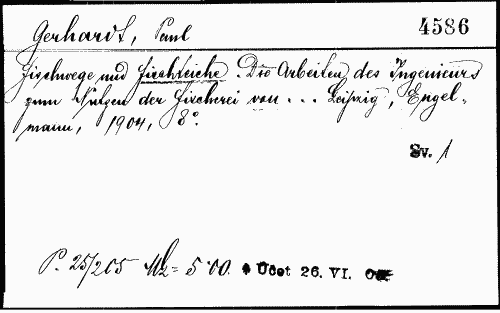 Gerhardt, Paul
4586
Fischwege und Fischteiche. Die Arbeiten des Ingenieurs
zum Nutzen der Fischerei von ... Leipzig, Engel-
mann, 1904, 8°.
Sv. 1
P. 25/205 Mk = 5.00. Účet 26. VI.